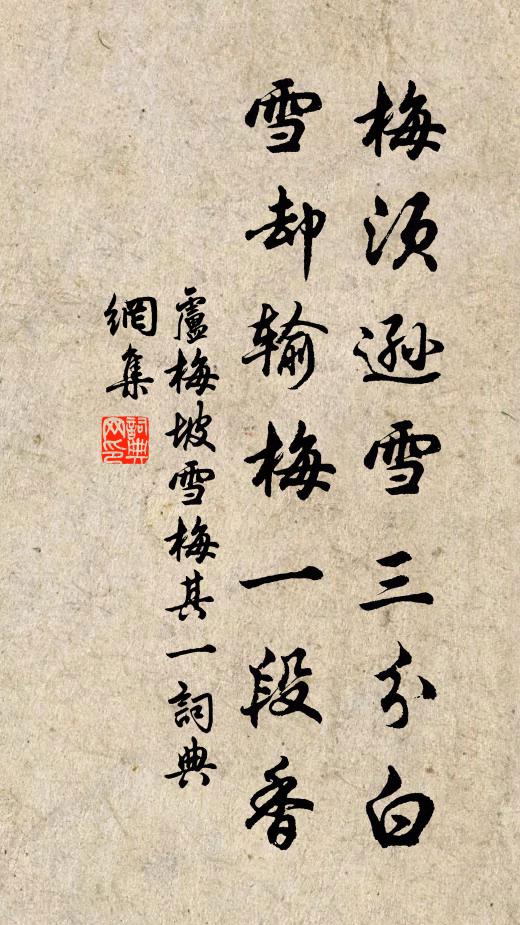 梅須遜雪三分白
雪却輸梅一段香
盧梅坡雪梅其一詞典
網集
詞典
网印